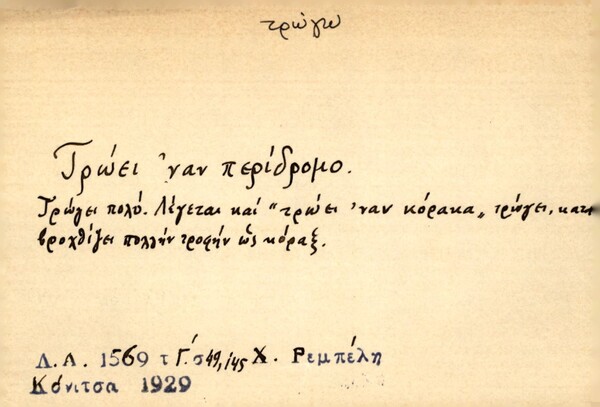 τρώγω
Τρώει ᾿ναν περίδρομο.
Τρώγει πολύ. Λέγεται καί "τρώει ᾿ναν κόρακα„ τρώγει, κατα
βροχθίζει πολλήν τροφήν ὡς κόραξ.
Λ.Α. 1569 τ Γ΄.σ 49, 145 Χ. Ρεμπέλη
Κόνιτσα 1929